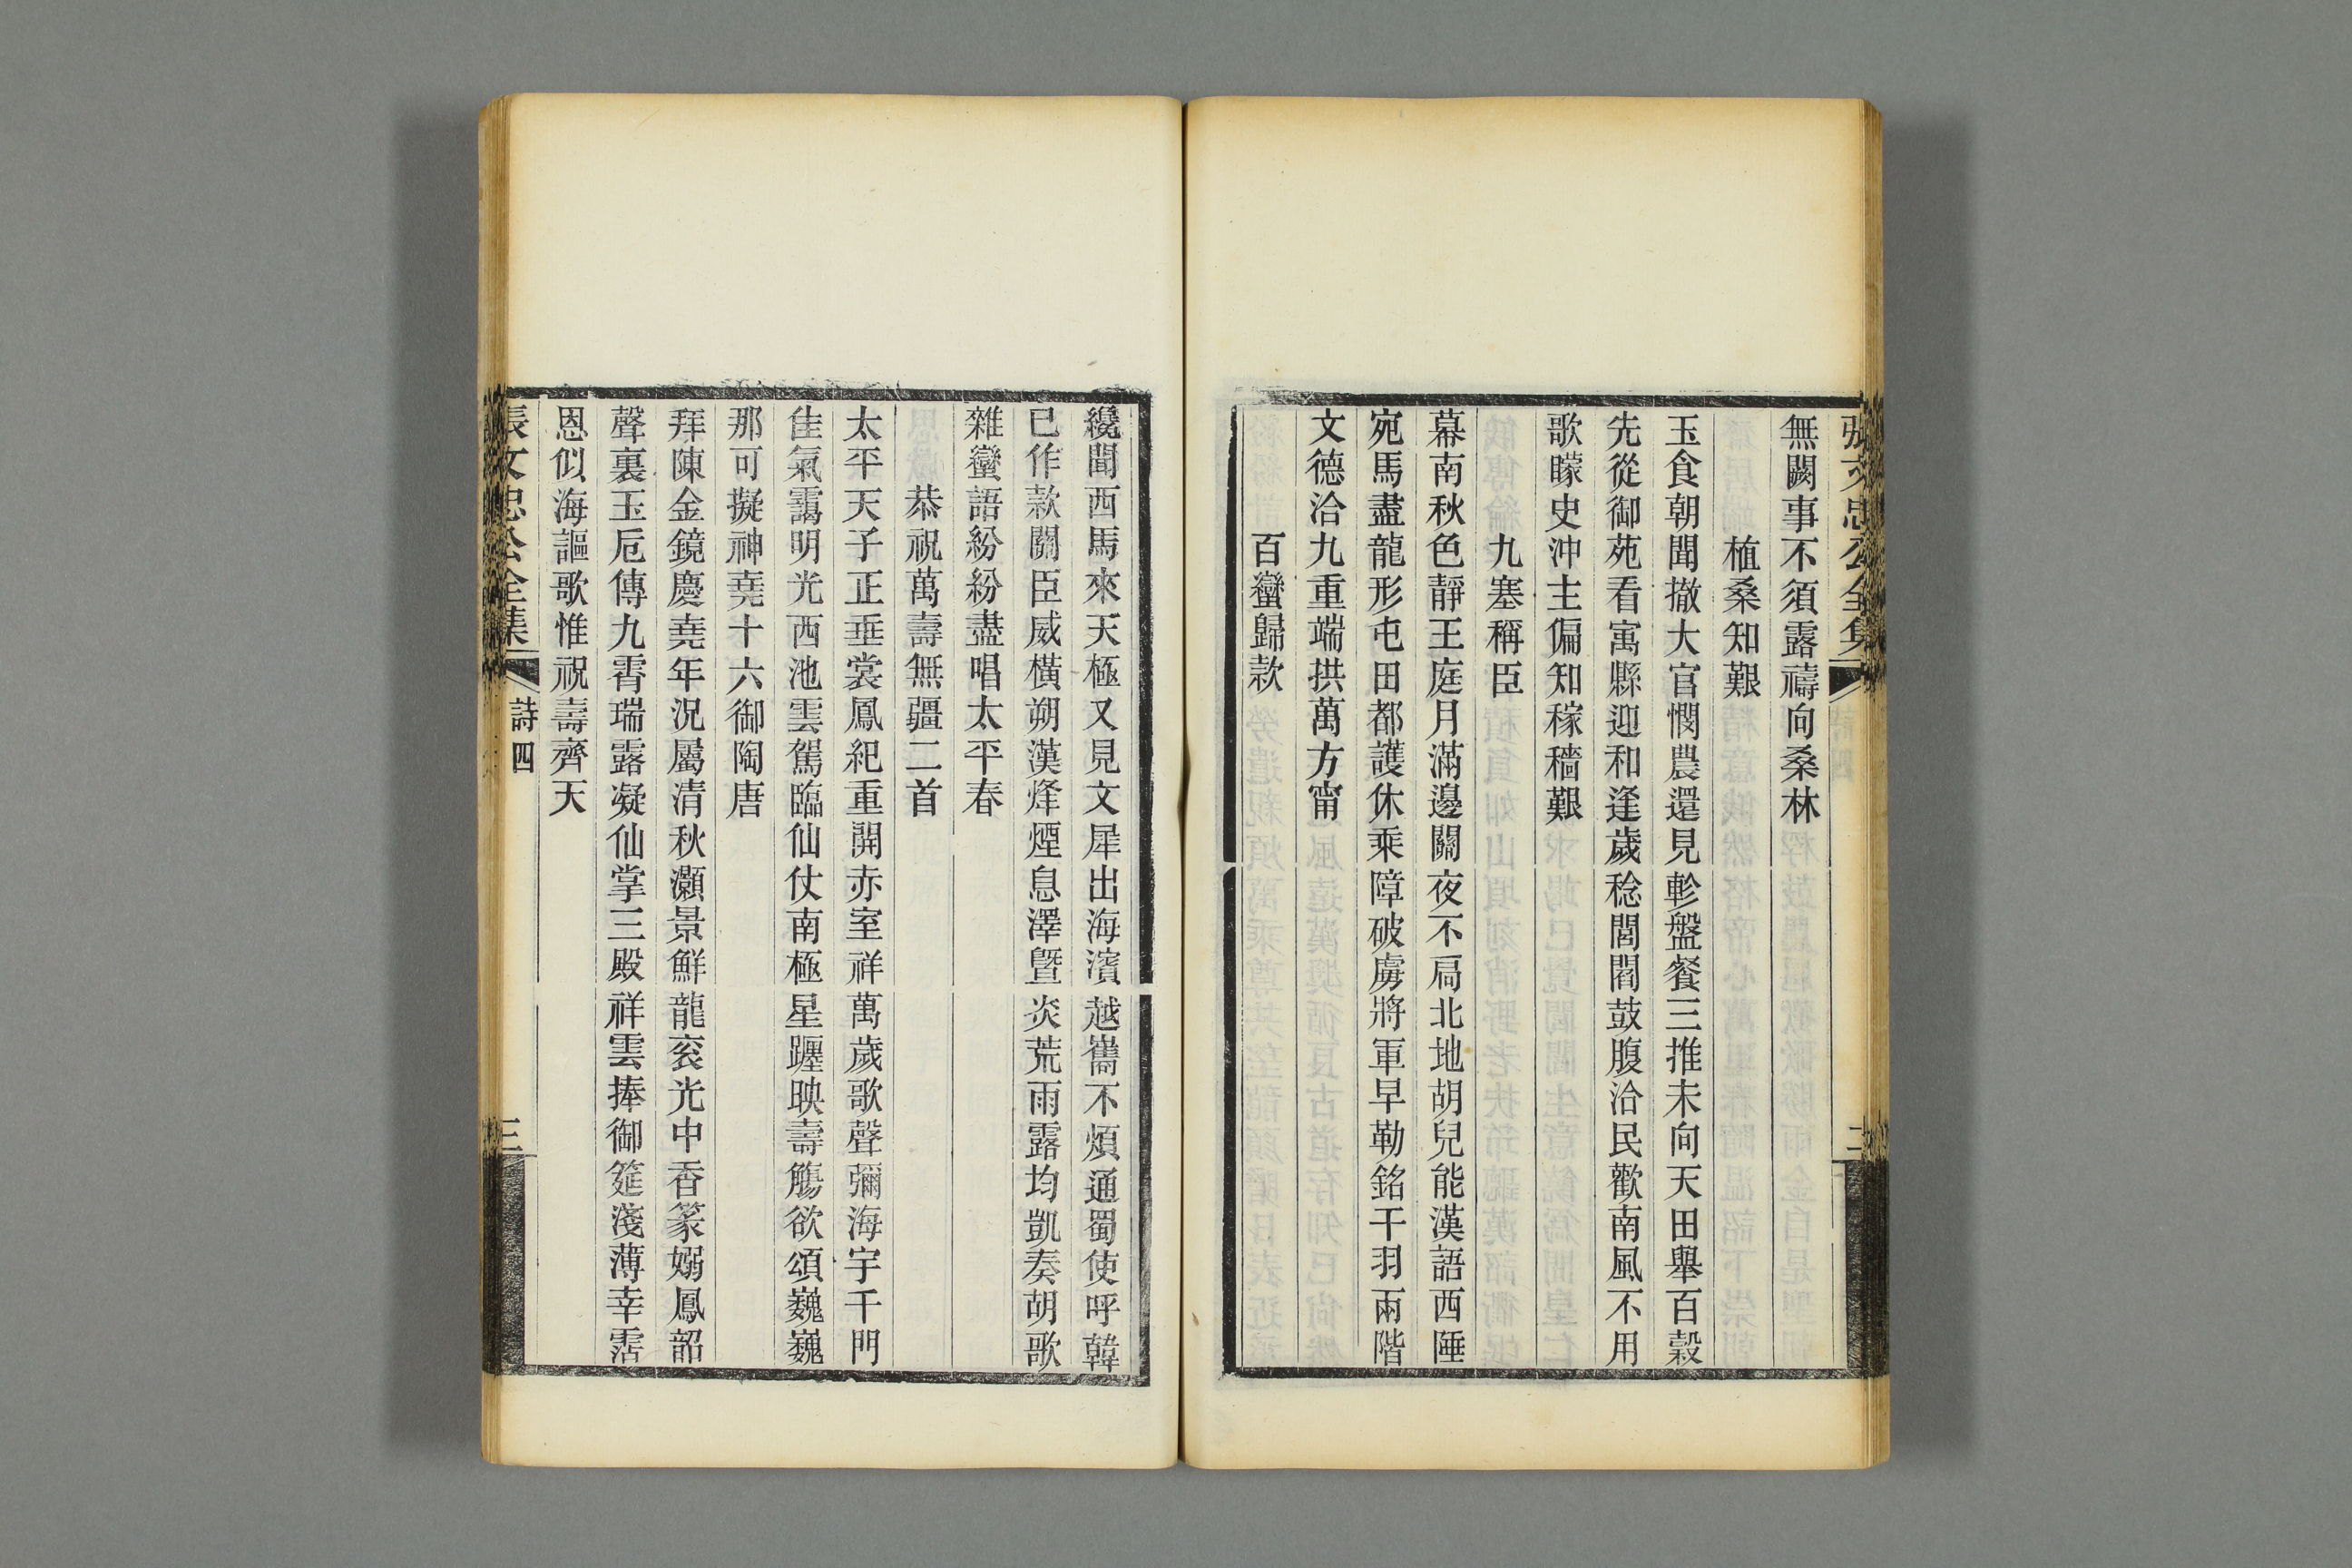 張文忠公全集
二
無闕事不須露禱向桑林
植桑知艱
玉食朝聞撤大官憫農還見軫盤餐三推未向天田舉百穀
先從御苑看寓縣迎和逢歲稔閭閻鼓腹洽民歡南風不用
歌矇史沖主偏知稼穡艱
九塞稱臣
幕南秋色靜王庭月滿邊關夜不扃北地胡兒能漢語西陲
宛馬盡龍形屯田都護休乘障破虜將軍早勒銘干羽兩階
文德洽九重端拱萬方甯
百蠻歸款
纔聞西馬來天極又見文犀出海濱越嶲不煩通蜀使呼韓
已作款關臣威橫朔漠烽煙息澤曁炎荒雨露均凱奏胡歌
雜蠻語紛紛盡唱太平春
恭祝萬壽無疆二首
太平天子正垂裳鳳紀重開赤室祥萬歲歌聲彌海宇千門
佳氣靄明光西池雲駕臨仙仗南極星躔映壽觴欲頌巍巍
那可擬神堯十六御陶唐
拜陳金鏡慶堯年況屬清秋灝景鮮龍衮光中香篆嫋鳳韶
聲裏玉卮傳九霄瑞露凝仙掌三殿祥雲捧御筵淺薄幸霑
恩似海謳歌惟祝壽齊天
張文忠公全集
詩四
三